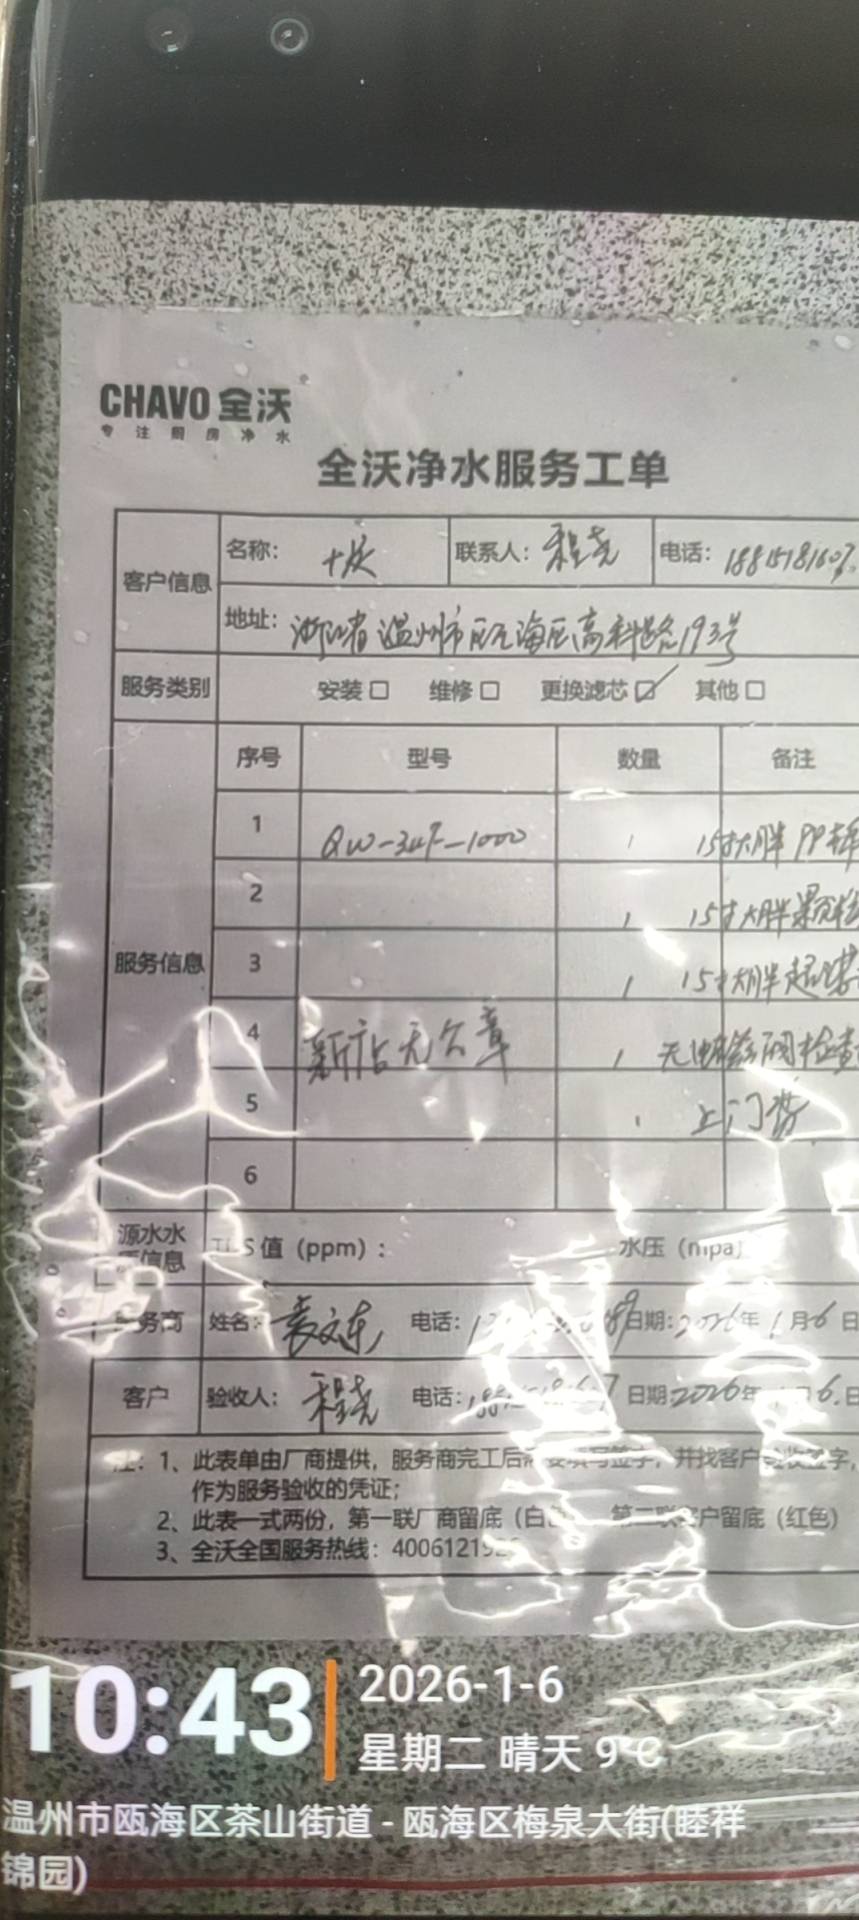 CHAVO 全沃
专注厨房净水
全沃净水服务工单
客户信息 名称: 联系人: 程尧 电话: 1881518160
地址: 浙江省温州市瓯海区高科路193号
服务类别 安装□ 维修□ 更换滤芯☑ 其他□
服务信息 序号 型号 数量 备注
1 QW-34F-1000 1 15寸大胖PP棉
2 1 15寸大胖颗粒
3 1 15寸大胖
4 新店无公章 1 无电磁阀检查
5 1 上门费
6
源水水质信息 TDS值（ppm）: 水压（mpa）
服务商 姓名: 袁文东 电话: 日期: 2026年1月6日
客户 验收人: 程尧 电话: 日期: 2026年 月6日
注: 1、此表单由厂商提供，服务商完工后需要填写签字，并找客户验收签字，
作为服务验收的凭证；
2、此表一式两份，第一联厂商留底（白色） 第二联客户留底（红色）
3、全沃全国服务热线: 40061219
10:43
2026-1-6
星期二 晴天 9℃
温州市瓯海区茶山街道 - 瓯海区梅泉大街(睦祥
锦园)